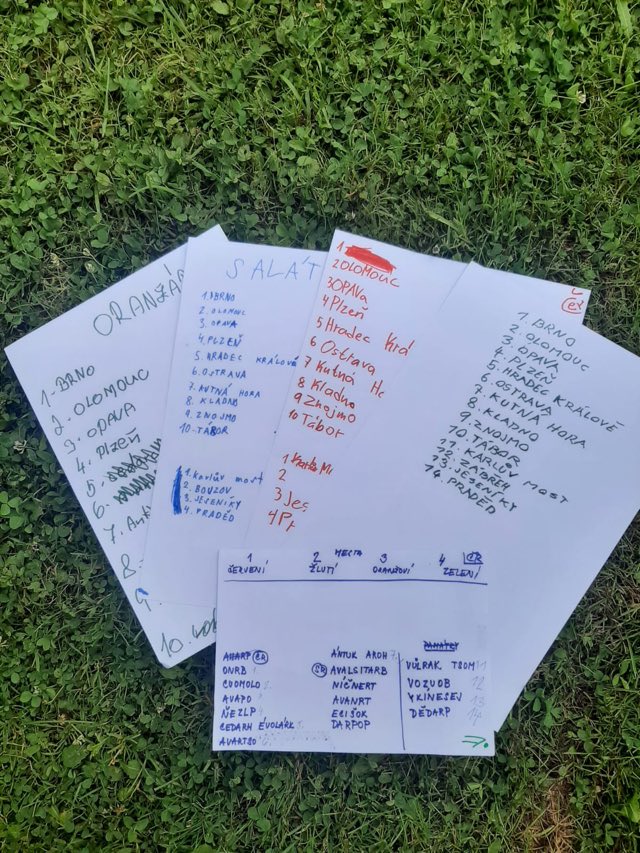 ORANŽÁ
1. BRNO
2. OLOMOUC
3. OPAVA
4. PLZEŇ
5.
6.
7.
8.
9.
10.
SALÁT
1. BRNO
2. OLOMOUC
3. OPAVA
4. PLZEŇ
5. HRADEC KRÁLOVÉ
6. OSTRAVA
7. KUTNÁ HORA
8. KLADNO
9. ZNOJMO
10. TÁBOR
1. Karlův most
2. BOUZOV
3. JESENÍKY
4. PRADĚD
1
2 OLOMOUC
3 OPAVA
4 Plzeň
5 Hradec Krá
6 Ostrava
7 Kutná Ho
8 Kladno
9 Znojmo
10 Tábor
1
2
3 Jes
4 Pr
ČR
1. BRNO
2. OLOMOUC
3. OPAVA
4. PLZEŇ
5. HRADEC KRÁLOVÉ
6. OSTRAVA
7. KUTNÁ HORA
8. KLADNO
9. ZNOJMO
10. TÁBOR
11. KARLŮV MOST
12. ZÁBŘEH
13. JESENÍKY
14. PRADĚD
MĚSTA
ČR
1 2 3 4
ČERVENÍ ŽLUTÍ ORANŽOVÍ ZELENÍ
AHARP ČR
ONRB
CUOMOLO
AVAPO
ŇEZLP
CEDARH ÉVOLÁRK
AVARTSO
ÁNTUK AROH 7
SR AVALSITARB
NÍČNERT
AVANRT
ECIŠOK
DARPOP
VŮLRAK TSOM 11
VOZUOB 12
YKINESEJ 13
DĚDARP 14